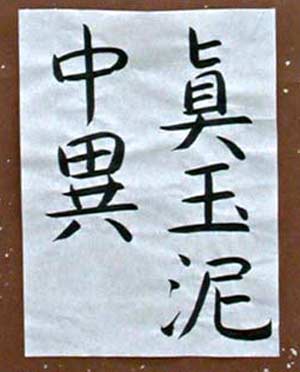 眞玉泥
中異